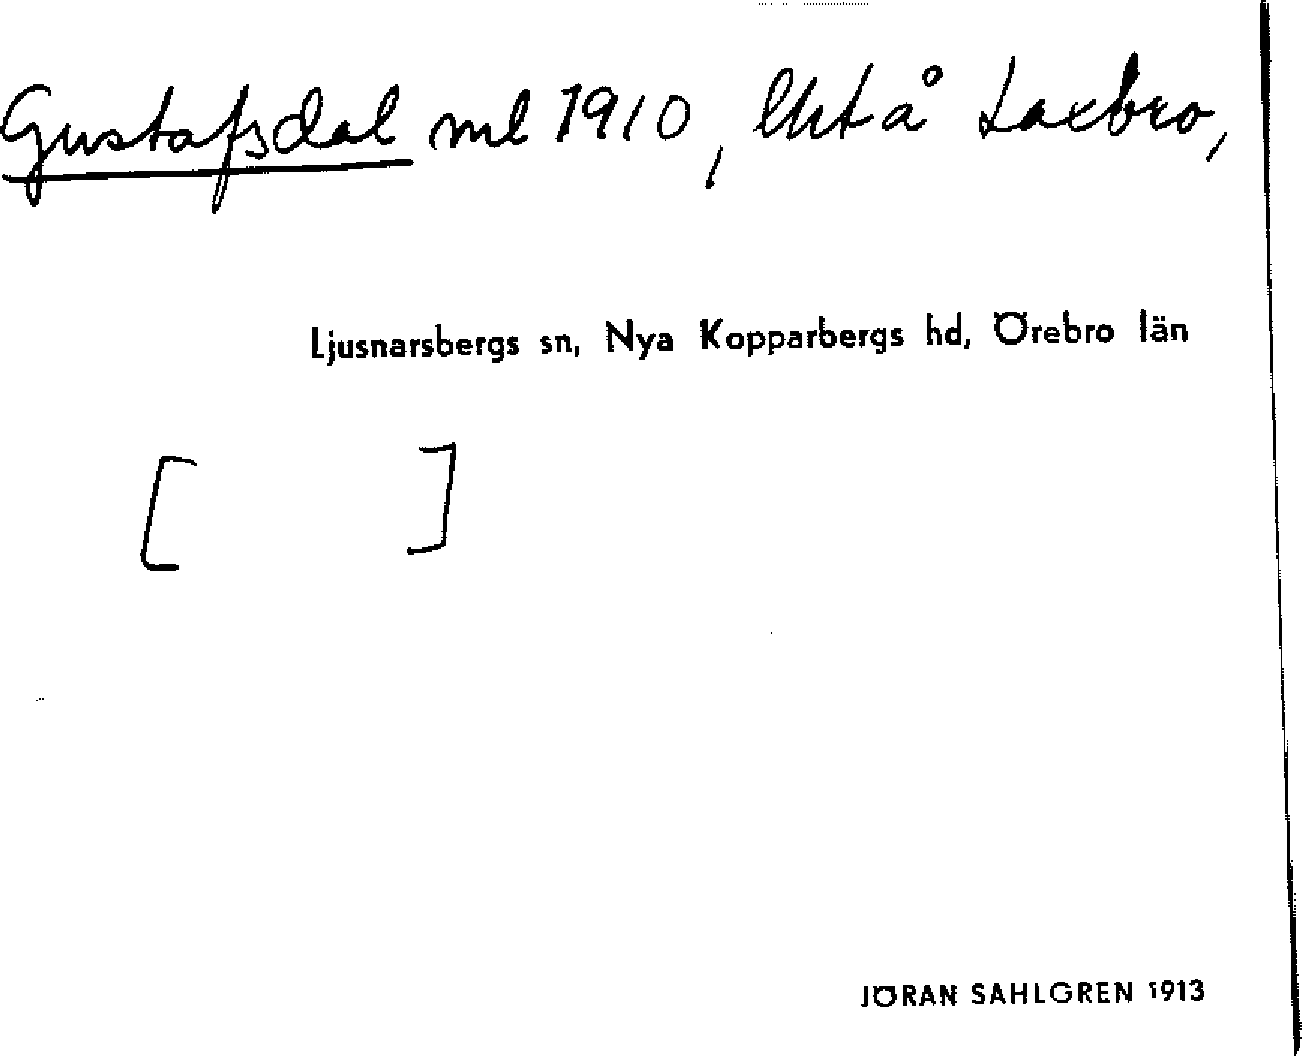 Gustafsdal ml 1910, lht å Laxbro,
Ljusnarsbergs sn, Nya Kopparbergs hd, Örebro län
[ ]
JÖRAN SAHLGREN 1913